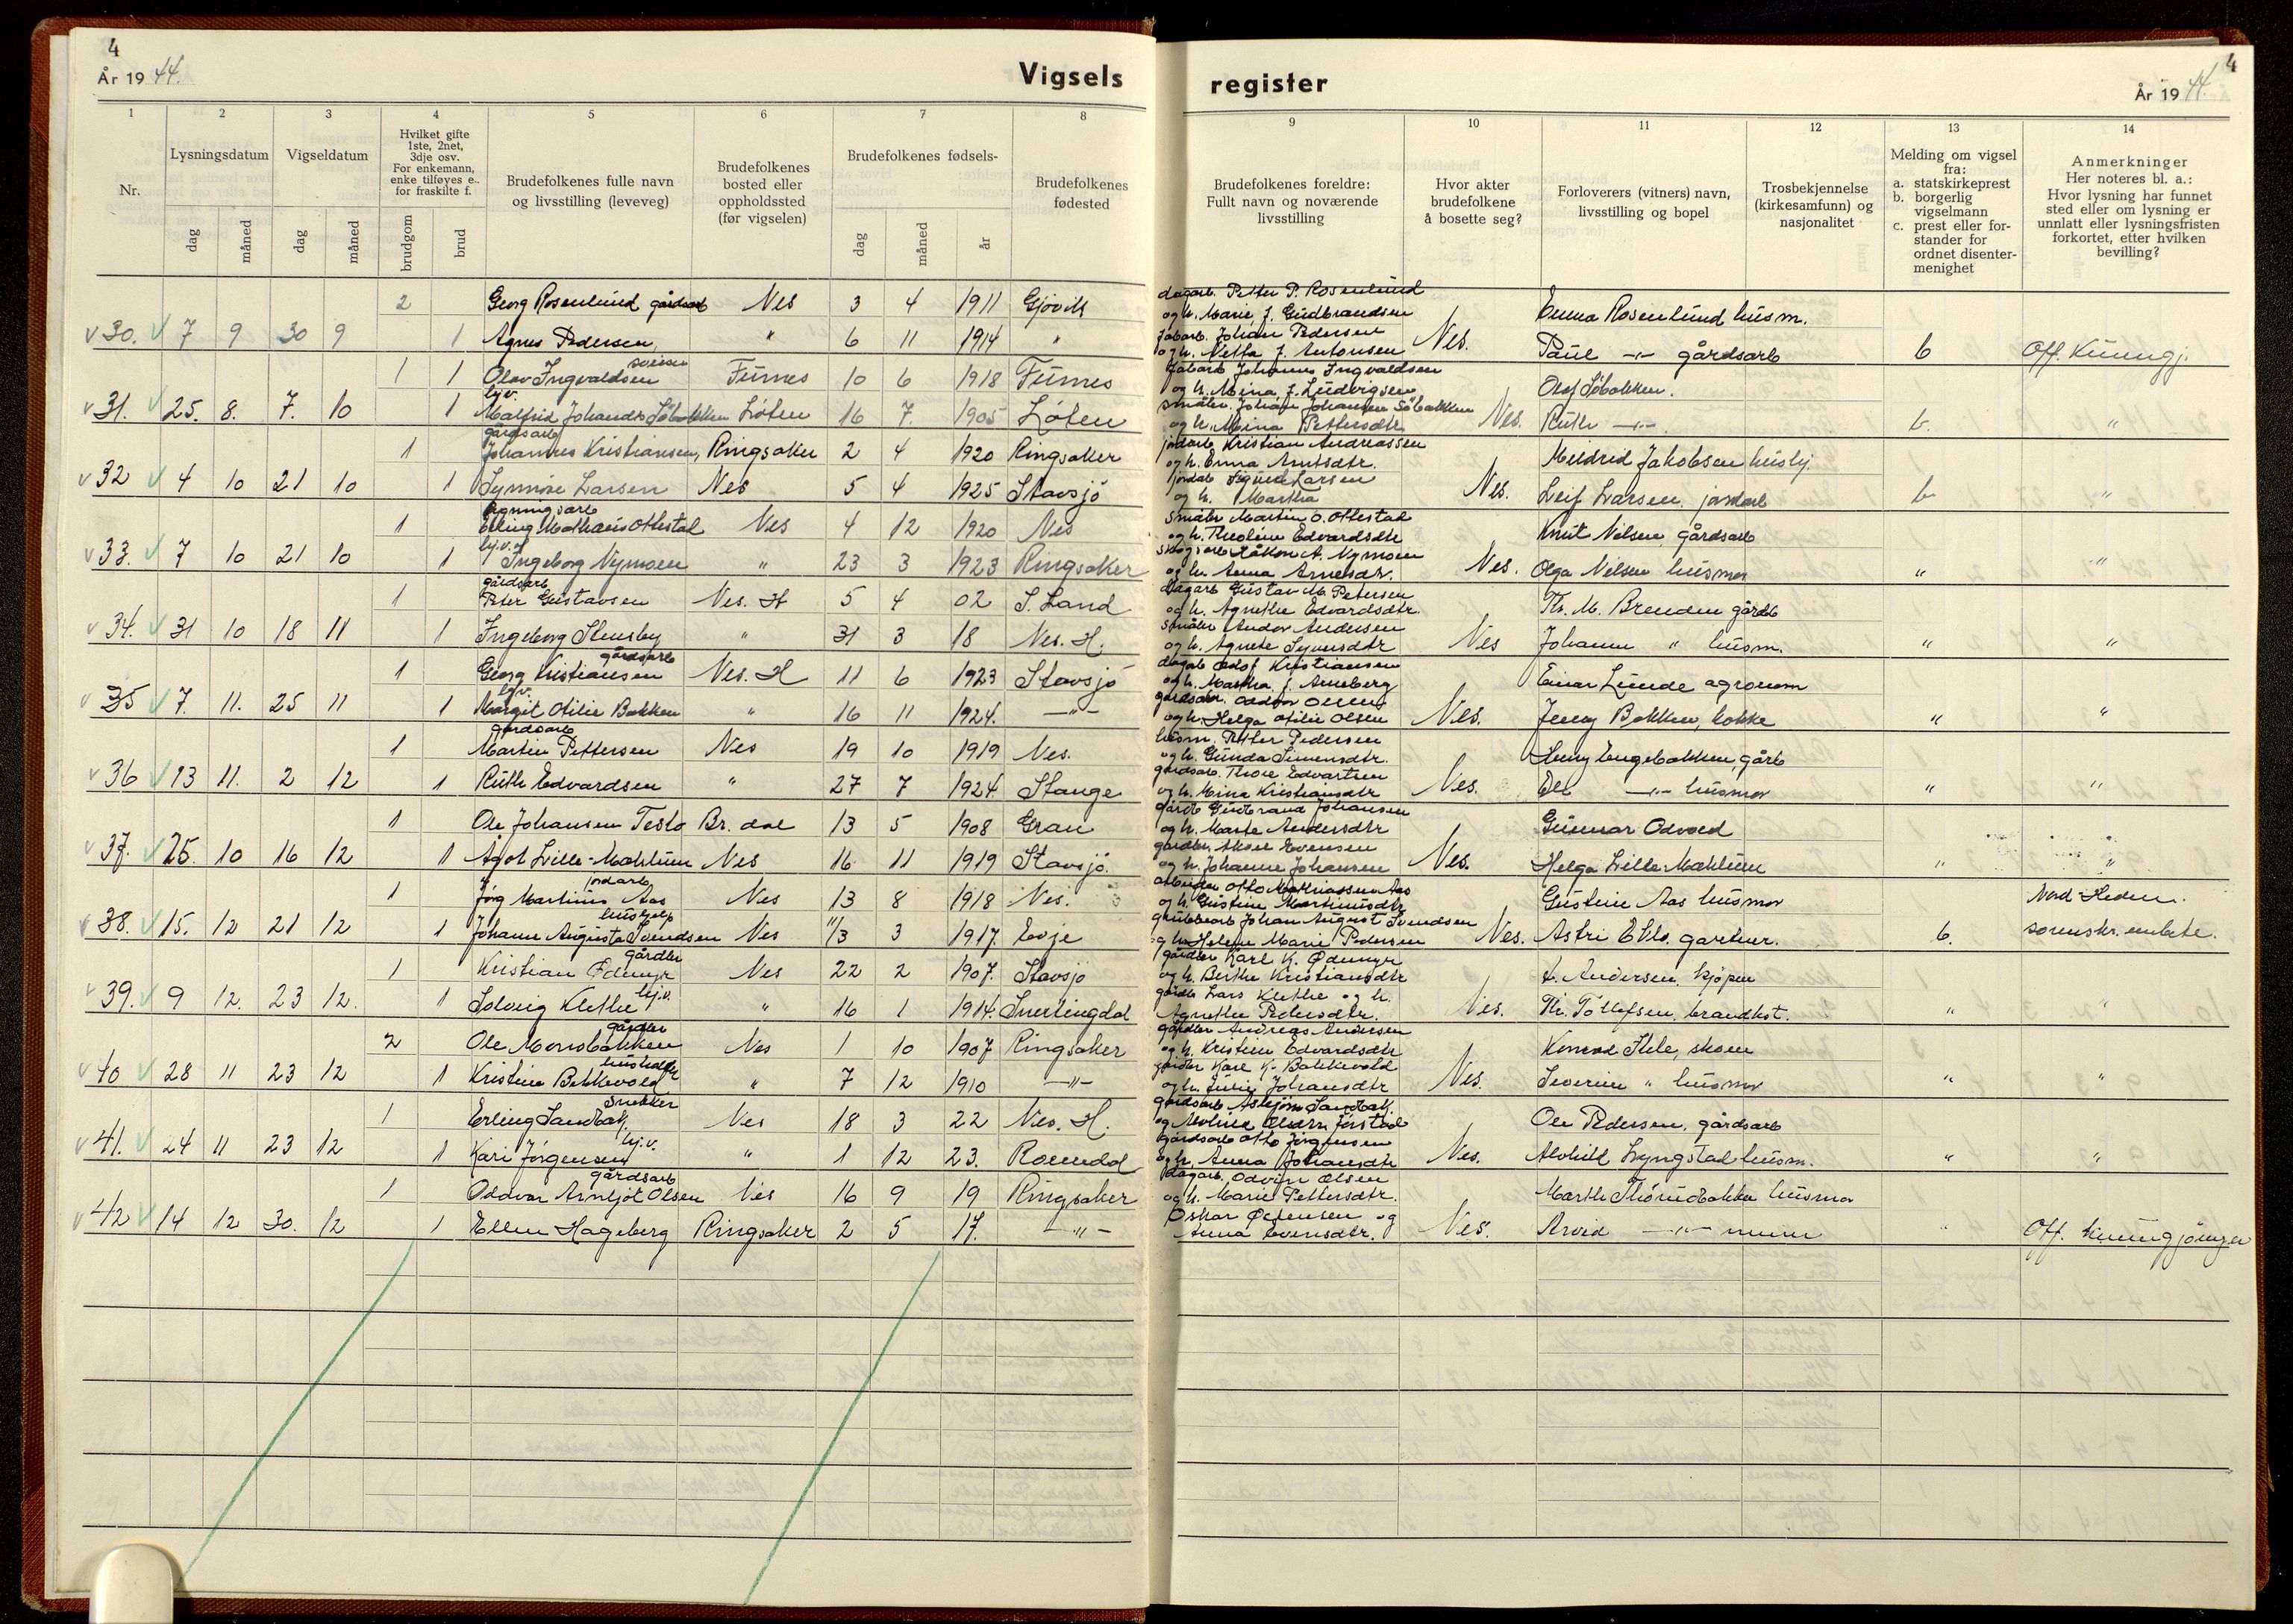 4
År 1944.
Vigsels
1 2 3 4 5 6 7 8
Nr.
Lysningsdatum
Vigseldatum
Hvilket gifte
1ste, 2net,
3dje osv.
For enkemann,
enke tilføyes e..
for fraskilte f.
Brudefolkenes fulle navn
og livsstilling (leveveg)
Brudefolkenes
bosted eller
oppholdssted
(før vigselen)
Brudefolkenes fødsels-
Brudefolkenes
fødested
dag måned dag måned brudgom brud dag måned år
2 Georg Rosenlund gårdsarb Nes 3 4 1911 Gjøvik
30. 7 9 30 9 1 Agnes Pedersen, " 6 11 1914 "
1 1 Olav Ingvaldsen Furnes 10 6 1918 Furnes
hj.v.
31. 25. 8. 7. 10 1 Malfrid Johanda Söbakken Löten 16 7. 1905 Löten
gårdsarb
1 Johannes Kristiansen, Ringsaker 2 4 1920 Ringsaker
32 4 10 21 10 1 Synnöve Larsen Nes 5 4 1925 Stavsjö
1 Erling Mathæus Ottestad Nes 4 12 1920 Nes
33. 7 10 21 10 1 Ingeborg Nymoen " 23 3 1923 Ringsaker
gårdsarb
1 Peter Gustavsen Nes. H 5 4 02 S. Land
34. 31 10 18 11 1 Ingeborg Stensby " 31 3 18 Nes. H.
gårdsarb
1 Georg Kristiansen Nes. H 11 6 1923 Stavsjö
hj.v.
35 7. 11. 25 11 1 Margit Otilie Bakken " 16 11 1924. -"-
gårdsarb
1 Martin Pettersen Nes 19 10 1919 Nes.
36 13 11. 2 12 1 Ruth Edvardsen " 27 7 1924 Stange
1 Ole Johansen Teslo Br. dal 13 5 1908 Gran
37. 25. 10 16 12 1 Agot Lille-Mæhlum Nes 16 11 1919 Stavsjö.
jordarb
1 Jörg Martinus Aas Nes 13 8 1918 Nes.
hushjelp
38. 15. 12 21 12 1 Johanne Augusta Svendsen Nes 11/3 3 1917. Evje
gårdbr
1 Kristian Ødemyr Nes 22 2 1907. Stavsjø
39. 9 12. 23 12. 1 Solveig Klethe hj.v. " 16 1 1914. Snertingdal
gårdbr
2 Ole Monsbakken Nes 1 10 1907 Ringsaker
40 28 11 23 12 1 Kristine Bakkevold " 7 12 1910 -"-
Snekker
1 Erling Sandbakk. Nes 18 3 22 Nes. H.
41. 24 11 23 12 1 Kari Jörgensen hj.v. " 1 12 23. Romedal
gårdsarb
1 Oddvar Arnljot Olsen Nes 16 9 19 Ringsaker
42 14 12 30. 12 1 Ellen Hageberg Ringsaker 2 5 17. -"-
register
År 1944.
4
9 10 11 12 13 14
Brudefolkenes foreldre:
Fullt navn og noværende
livsstilling
Hvor akter
brudefolkene
å bosette seg?
Forloverers (vitners) navn,
livsstilling og bopel
Trosbekjennelse
(kirkesamfunn) og
nasjonalitet
Melding om vigsel
fra:
a. statskirkeprest
b. borgerlig
vigselmann
c. prest eller for-
stander for
ordnet disenter-
menighet
Anmerkninger
Her noteres bl. a.:
Hvor lysning har funnet
sted eller om lysning er
unnlatt eller lysningsfristen
forkortet, etter hvilken
bevilling?
dagarb. Petter P. Rosenlund
og h. Marie f. Gudbrandsen Emma Rosenlund husm.
Johan Pedersen
og h. Netta f. Antonsen Nes. Paul -"- gårdsarb b Off. Kunngj.
Johannes Ingvaldsen
og h. Mina f. Ludvigsen Olaf Söbakken.
småbr. Johan Johansen Söbakken
og h. Mina Pettersdtr. Nes. Ruth -"-. b. "
jordarb Kristian Andreassen
og h. Emma Arntsdtr. Meldrid Jakobsen hushj.
jordarb Sigurd Larsen
og h. Martha Nes. Leif Larsen, jordarb b "
småbr Martin O. Ottestad
og h. Theoline Edvardsdtr Knut Nelsen, gårdsarb
skogsarb Håkon A. Nymoen
og h. Anna Arnesdtr. Nes. Olga Nelsen husmor " "
Dagarb Gustav M. Petersen
og h. Agnethe Edvardsdtr. Th. M. Brenden gårdb
småbr Andor Andersen
og h. Agnete Syversdtr Nes Johanne " husm. " "
dagarb Adolf Kristiansen
og h. Martha f. Arneberg Einar Lunde agronom
gårdsarb. Oddvar Olsen
og h. Helga Otilie Olsen Nes. Jenny Bakken, kokke " "
husm. Petter Pedersen
og h. Gunda Simensdtr. Henry Engebakken, gårb
gårdsarb. Thore Edvartsen
og h. Mina Kristiansdtr Nes. Else -"- husmor " "
gårdb Gudbrand Johansen
og h. Marte Andersdtr Gunnar Odvold
gårdbr. Evensen
og h. Johanne Johansen Nes. Helga Lille Mæhlum " "
arbeider Otto Mathiassen Aas
og h. Gustine Martinusdtr Gustine Aas husmor Nord-Hedm.
grubearb Johan August Svendsen
og h. Helene Marie Pedersen Nes. Astri Eklo. gartner. b. sorenskr. embete.
gårdbr Karl K. Ødemyr
og h. Berthe Kristiansdtr A. Andersen, kjøpm
gårdb Lars Klethe og h.
Agnethe Pedersdtr. Nes. Th. Tollefsen, brandkst. " "
gårdbr Andreas Andersen
og h. Kristine Edvardsdtr Konrad Stele, skom
gårdbr Karl K. Bakkevold
og h. Julie Johansdtr Nes. Severine " husmor " "
gårdsarb Asbjørn Sandbakk.
og Molvina Olsdtr Jörstad Ole Pedersen, gårdsarb
gårdsarb Otto Jörgensen
og h. Anna Johansdtr Nes. Alvhild Lyngstad husm. " "
dagarb. Odvin Olsen
og h. Marie Pettersdtr. Marthe Thorudbakken husmor
Oskar
Anna Evensdtr. Nes. Arvid -"- murer " Off. Kunngjöringer